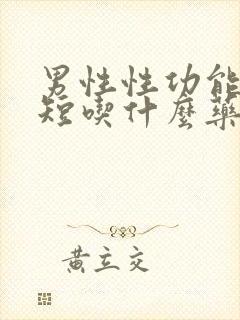 男性性功能
短喫什麼藥
黃立交